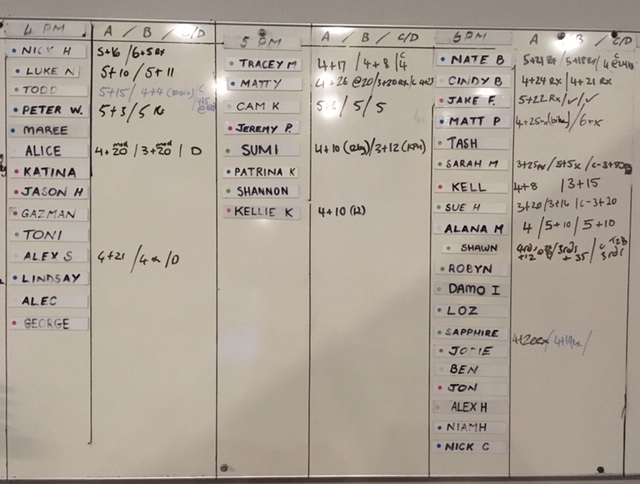 4 PM A / B / C/D
NICK H 5+16 / 6+5 Rx
LUKE N 5+10 / 5+11
TODD 5+15 / 4+4
PETER W. 5+3 / 5 Rx
MAREE
ALICE 4+20 mod / 3+20 mod / D
KATINA
JASON H
GAZMAN
TONI
ALEX S 4+21 / 4 / D
LINDSAY
ALEC
GEORGE
5 PM A / B / C/D
TRACEY M 4+17 / 4+8 / C
MATTY 4+26 @20 / 3+20Rx /
CAM K 5 / 5
JEREMY P.
SUMI 4+10 / 3+12 (KPM)
PATRINA K
SHANNON
KELLIE K 4+10 (12)
6 PM A / B / C/D
NATE B 5+21 Rx / 5+18 Rx /
CINDY B 4+24 Rx / 4+21 Rx
JAKE F. 5+22 Rx / ✓ / ✓
MATT P / 6 rx
TASH
SARAH M 3+25 / 5+5x / C-3+50
KELL 4+8 / 3+15
SUE H 3+20 / 3+16 / C-3+20
ALANA M 4 / 5+10 / 5+10
SHAWN 4rds +12 / 3rds +35 / 3rds
ROBYN
DAMO I
LOZ
SAPPHIRE
JODIE 4+20rx / 4+19rx /
BEN
JON
ALEX H
NIAMH
NICK C